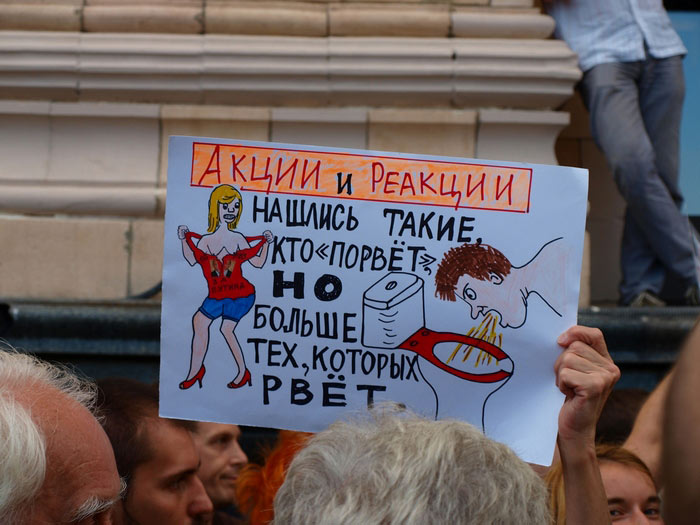 Акции и Реакции
Нашлись такие,
кто «порвёт»,
но
больше
тех, которых
рвёт.
Путина